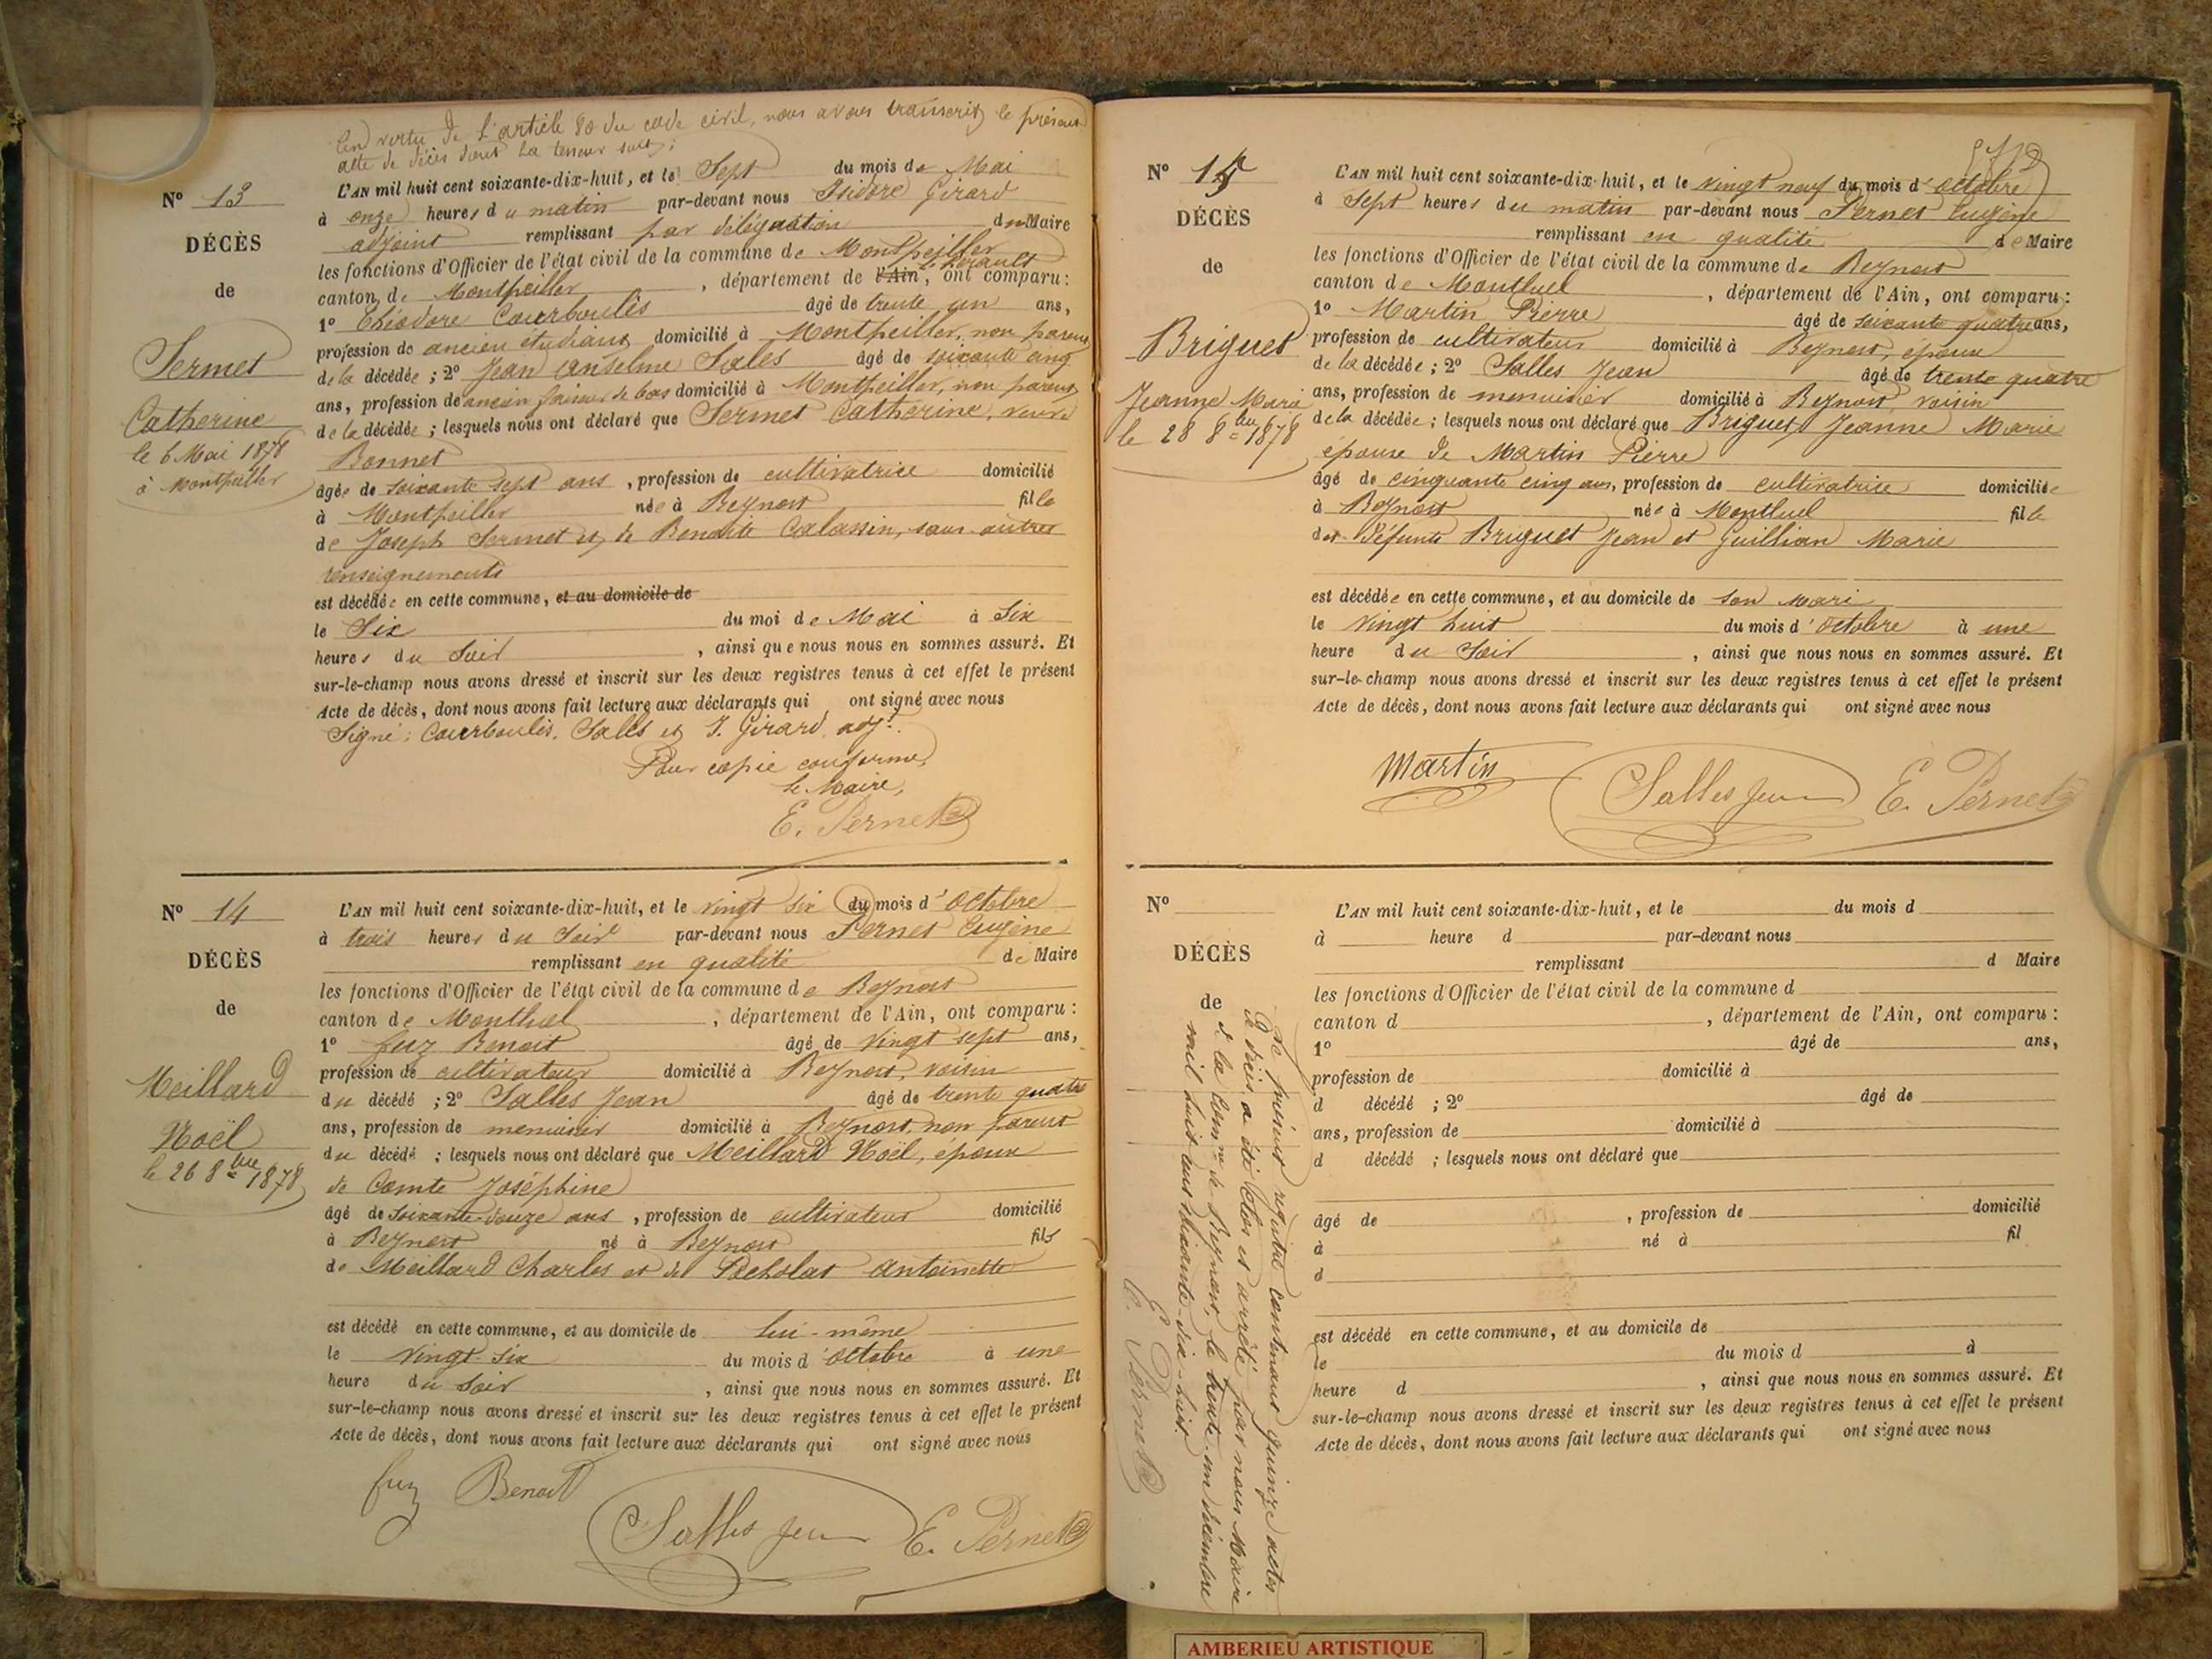 En vertu de l'article 80 du code civil, nous avons transcrit le présent
acte de décès dont la teneur suit :
N° 13
DÉCÈS
de
Sermet
Catherine
le 6 Mai 1878
à Montpellier
L'AN mil huit cent soixante-dix-huit, et le Sept du mois de Mai
à onze heures du matin par-devant nous Isidore Girard
adjoint remplissant par délégation du Maire
les fonctions d'Officier de l'état civil de la commune de Montpellier
canton de Montpellier, département de l'Ain, l'hérault ont comparu :
1° Théodore Courboulès âgé de trente un ans,
profession de ancien étudiant domicilié à Montpellier, non parent
de la décédée ; 2° Jean Anselme Salès âgé de soixante cinq
ans, profession de ancien faiseur de bas domicilié à Montpellier, non parent
de la décédée ; lesquels nous ont déclaré que Sermet Catherine, veuve
Bonnet
âgée de soixante sept ans, profession de cultivatrice domicilié
à Montpellier née à Beynost fille
de Joseph Sermet et de Benoite Calassin, sans autres
renseignements
est décédée en cette commune, et au domicile de
le Six du moi de Mai à Six
heures du Soir, ainsi que nous nous en sommes assuré. Et
sur-le-champ nous avons dressé et inscrit sur les deux registres tenus à cet effet le présent
Acte de décès, dont nous avons fait lecture aux déclarants qui ont signé avec nous
Signé : Courboulès, Salès et I. Girard adjt.
Pour copie conforme,
le Maire,
E. Pernet
N° 14
DÉCÈS
de
Meillard
Noël
le 26 8bre 1878
L'AN mil huit cent soixante-dix-huit, et le vingt six du mois d'Octobre
à trois heures du Soir par-devant nous Pernet Eugène
remplissant en qualité de Maire
les fonctions d'Officier de l'état civil de la commune de Beynost
canton de Montluel, département de l'Ain, ont comparu :
1° fuz Benoit âgé de vingt sept ans,
profession de cultivateur domicilié à Beynost, voisin
du décédé ; 2° Salles Jean âgé de trente quatre
ans, profession de menuisier domicilié à Beynost, non parent
du décédé ; lesquels nous ont déclaré que Meillard Noël, époux
de Comte Joséphine
âgé de soixante-douze ans, profession de cultivateur domicilié
à Beynost né à Beynost fils
de Meillard Charles et de Pacholat Antoinette
est décédé en cette commune, et au domicile de lui-même
le vingt-six du mois d'octobre à une
heure du Soir, ainsi que nous nous en sommes assuré. Et
sur-le-champ nous avons dressé et inscrit sur les deux registres tenus à cet effet le présent
Acte de décès, dont nous avons fait lecture aux déclarants qui ont signé avec nous
fuz Benoit
Salles Jean E. Pernet
N° 15
DÉCÈS
de
Briguet
Jeanne Marie
le 28 8bre 1878
L'AN mil huit cent soixante-dix-huit, et le vingt neuf du mois d'octobre
à Sept heures du matin par-devant nous Pernet Eugène
remplissant en qualité de Maire
les fonctions d'Officier de l'état civil de la commune de Beynost
canton de Montluel, département de l'Ain, ont comparu :
1° Martin Pierre âgé de soixante quatre ans,
profession de cultivateur domicilié à Beynost, époux
de la décédée ; 2° Salles Jean âgé de trente quatre
ans, profession de menuisier domicilié à Beynost, voisin
de la décédée ; lesquels nous ont déclaré que Briguet Jeanne Marie
épouse de Martin Pierre
âgé de cinquante cinq ans, profession de cultivatrice domiciliée
à Beynost née à Montluel fille
des Défunts Briguet Jean et Guillian Marie
est décédée en cette commune, et au domicile de son Mari
le vingt huit du mois d'octobre à une
heure du Soir, ainsi que nous nous en sommes assuré. Et
sur-le-champ nous avons dressé et inscrit sur les deux registres tenus à cet effet le présent
Acte de décès, dont nous avons fait lecture aux déclarants qui ont signé avec nous
Martin Salles Jean E. Pernet
N°
DÉCÈS
de
Le présent registre contenant quinze actes
de décès a été clos et arrêté par nous Maire
de la comne de Beynost, le trente-un décembre
mil huit cent soixante-dix-huit.
E. Pernet
L'AN mil huit cent soixante-dix-huit, et le du mois d
à heure d par-devant nous
remplissant d Maire
les fonctions d'Officier de l'état civil de la commune d
canton d , département de l'Ain, ont comparu :
1° âgé de ans,
profession de domicilié à
d décédé ; 2° âgé de
ans, profession de domicilié à
d décédé ; lesquels nous ont déclaré que
âgé de , profession de domicilié
à né à fil
d
est décédé en cette commune, et au domicile de
le du mois d à
heure d , ainsi que nous nous en sommes assuré. Et
sur-le-champ nous avons dressé et inscrit sur les deux registres tenus à cet effet le présent
Acte de décès, dont nous avons fait lecture aux déclarants qui ont signé avec nous
AMBERIEU ARTISTIQUE